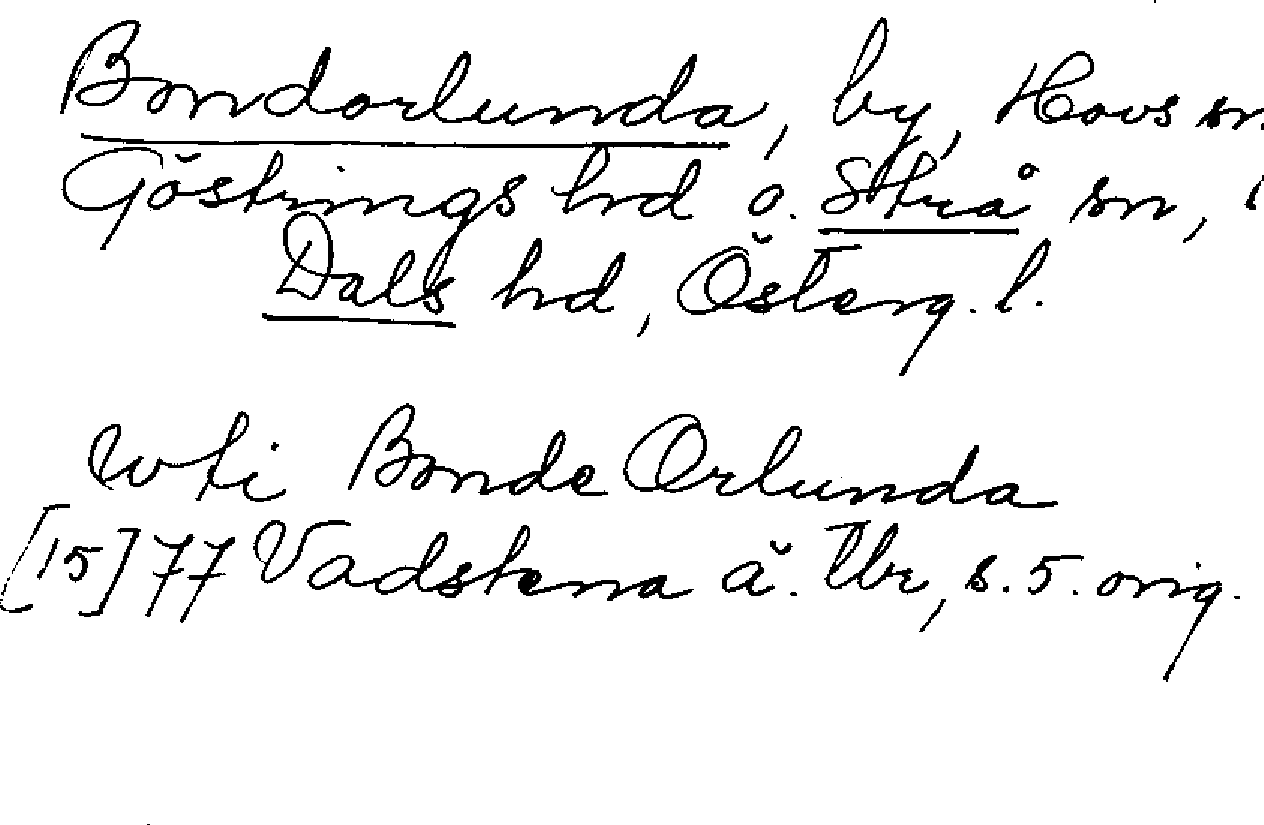 Bondorlunda, by, Hovs sn.
Göstrings hd o. Strå sn,
Dals hd, Österg. l.
wti Bonde Orlunda
[15]77 Vadstena ä. Tbr, s. 5. orig.